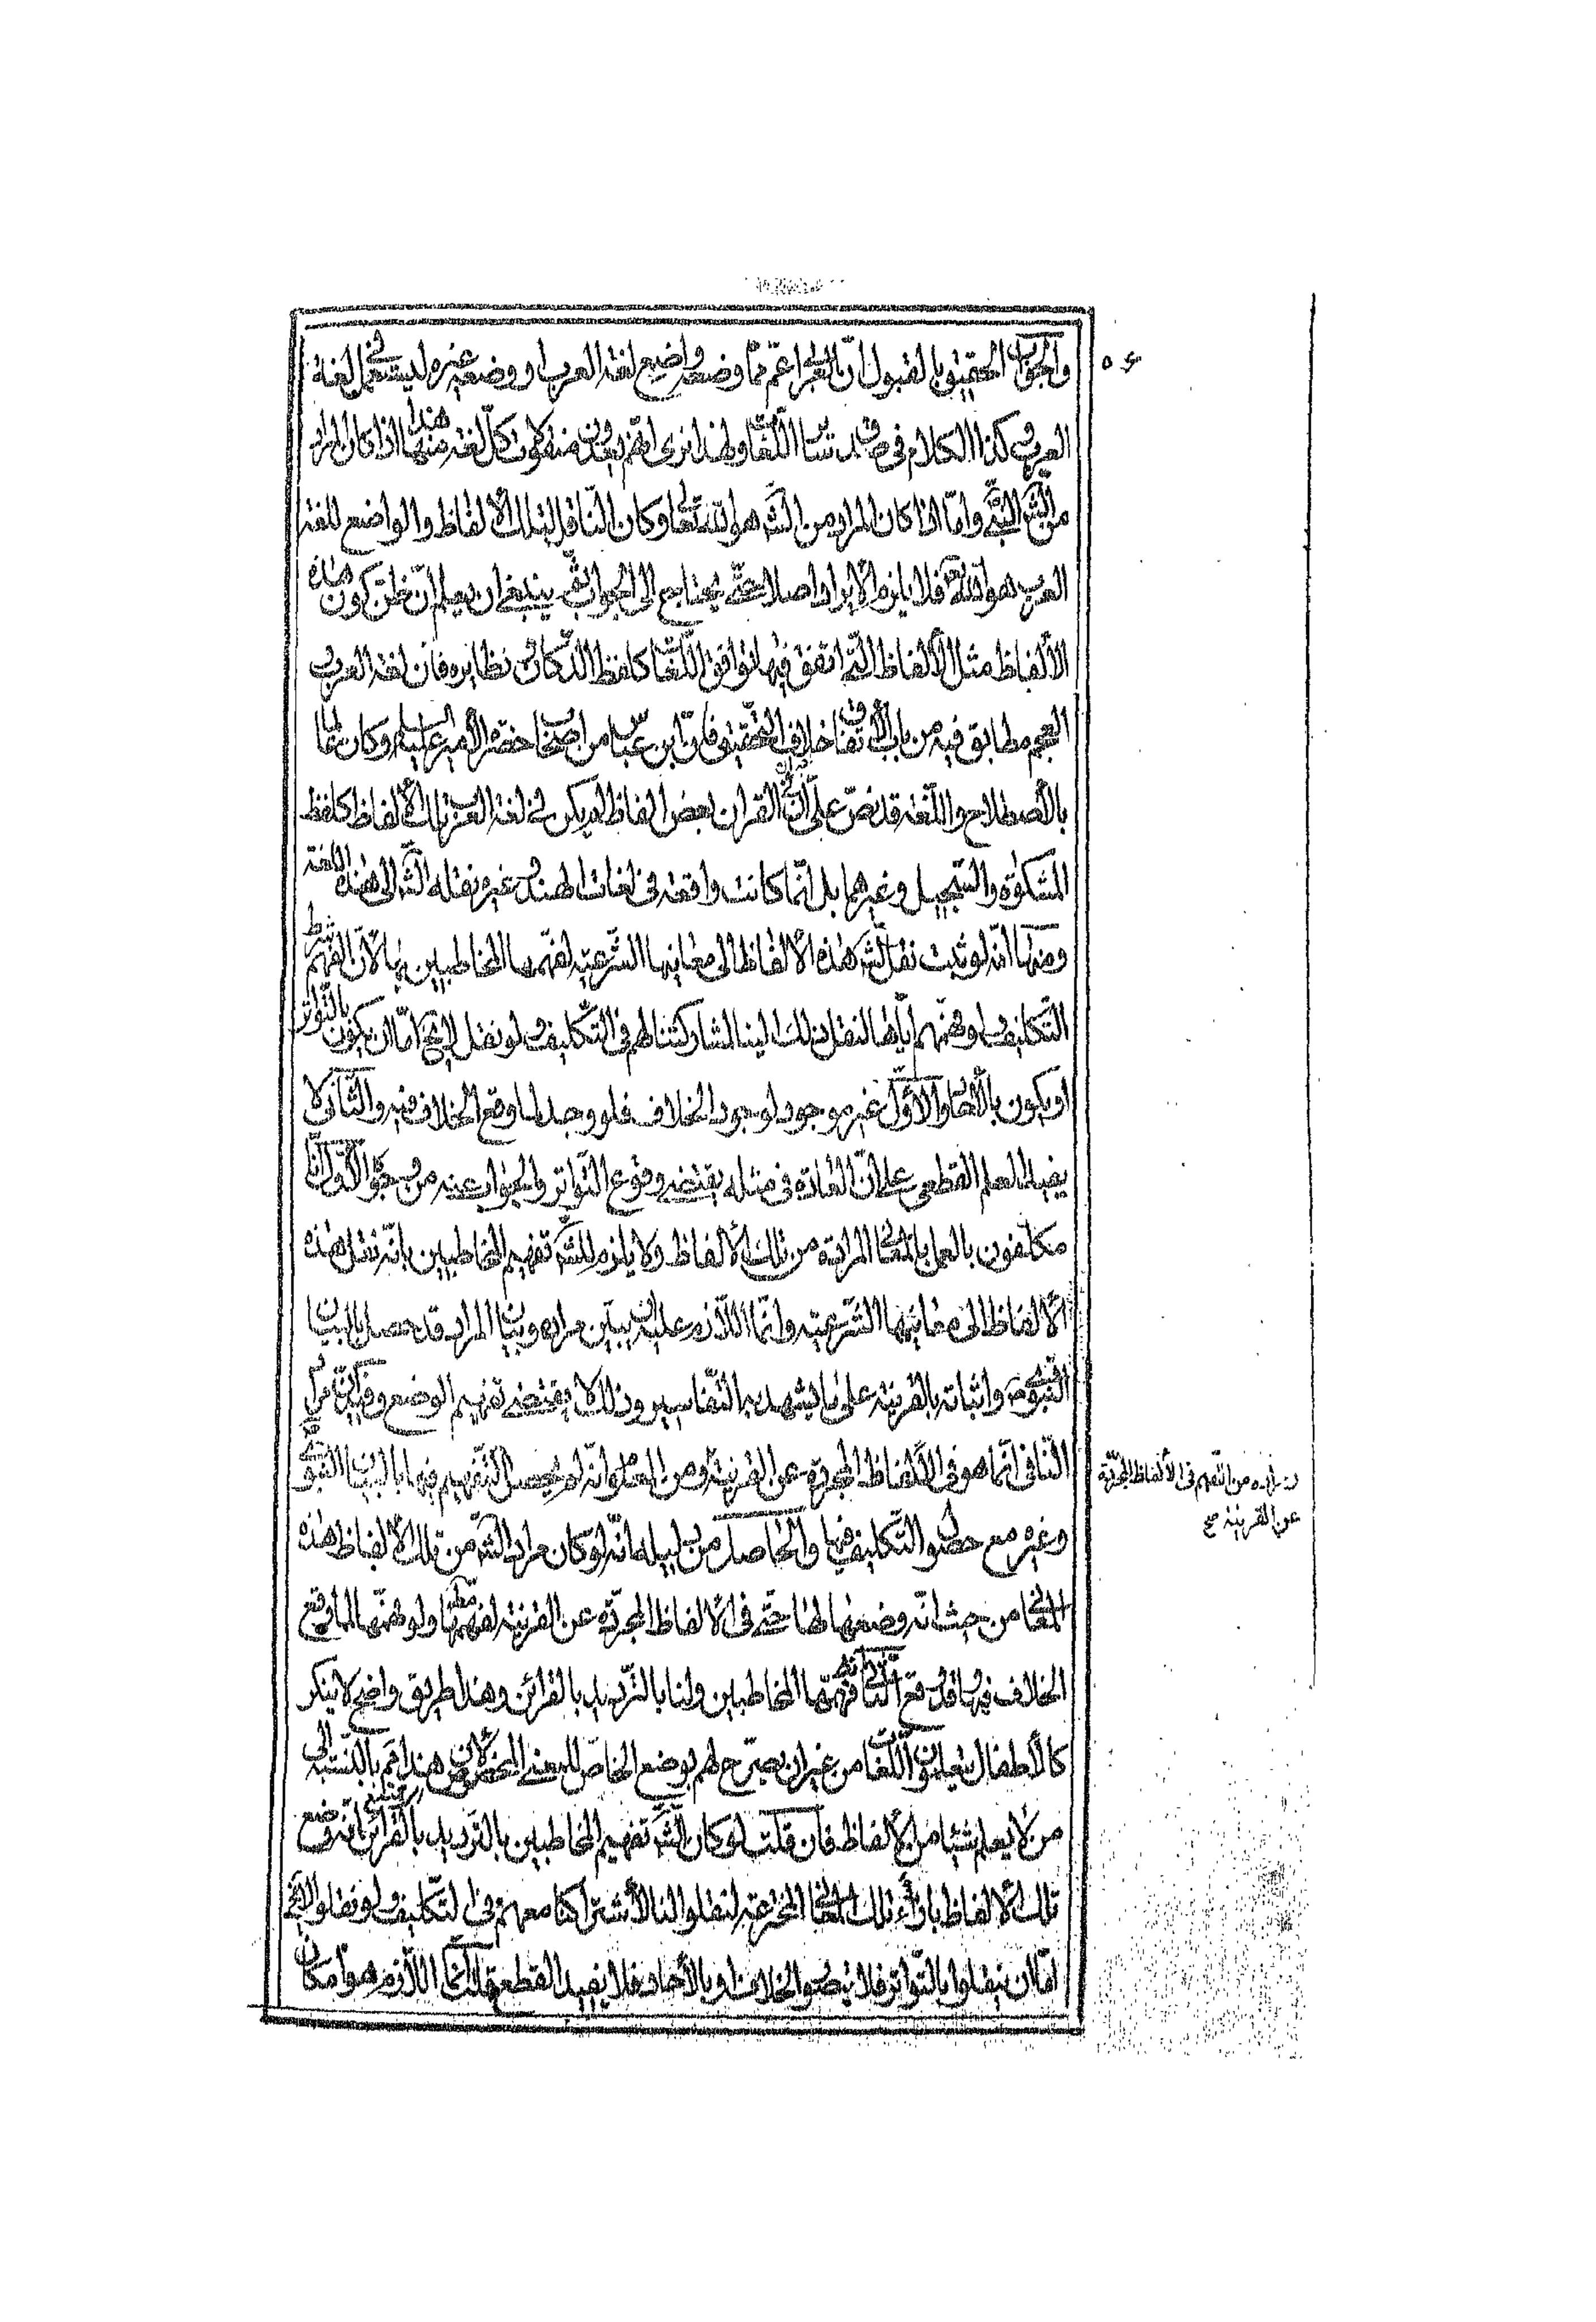 والجواب الحقيق بالقبول ان العربى اعم مما وضعه واضع لغة العرب او وضعه غيره ليستعمل فى لغة
العرب وكذا الكلام فى صدق سائر اللغات ولهذا نرى انهم يعدون منه كون كل لغة منها هذا اذا كان المراد
من الش النبى واما اذا كان المراد من الش هو الله تعالى وكان الناقل لتلك الألفاظ والواضع للغة
العرب هو الله تعالى فلا يلزم الايراد اصلا حتى يحتاج الى الجواب ثم ينبغى ان يعلم ان ظن كون هذه
الألفاظ مثل الألفاظ التى اتفق فيها توافق اللغات كلفظ الدكان ونظايره فان لغة العرب و
العجم مطابق فيه من باب الأتفاق خلاف التحقيق فان ابن عباس من اصحاب حضرة الأمير عليه السلام وكان عالما
بالأصطلاح واللغة قد نص على ان فى القران بعض الفاظ لم يكن فى لغة العرب تلك الألفاظ كلفظ
المشكوة والسجيل وغيرهما بل انما كانت واقعة فى لغات الهند وغيره نقله الش الى هذه اللغة
ومنها انه لو ثبت نقل الش هذه الألفاظ الى معانيها الشرعية لفهمها المخاطبين بها لأن الفهم شرط
التكليف ولو فهمهم اياها لنقل ذلك الينا لمشاركتنا لهم فى التكليف ولو نقل الينا اما ان يكون بالتواتر
او يكون بالأحاد والأول غير موجود لوجود الخلاف فلو وجد لما وقع الخلاف فيه والثانى لا
يفيد العلم القطعى على ان العادة فى مثله يقتضى وقوع التواتر والجواب عنه من وجوه الأول انا
مكلفون بالعمل بالمعانى المرادة من تلك الألفاظ ولا يلزم للش تفهيم المخاطبين بانه نقل هذه
الألفاظ الى معانيها الشرعية وانما اللازم عليه ان يبين مراده وبيان المراد قد حصل بالبيان
النبوى واثباته بالقرينة على ما يشهد به التفاسير وذلك لا يقتضى تفهيم الوضع وفيه ان مراد
النافى انما هو فى الألفاظ المجردة عن القرينة ومن المعلوم انه لم يحصل التفهيم فيها بالبيان النبوى
وغيره مع حصول التكليف فيها والحاصل من دليله انه لو كان مراد الش من تلك الألفاظ هذه
المعانى من حيث انه وضعها لها حتى فى الألفاظ المجردة عن القرينة لفهمها ولو فهمها لما وقع
الخلاف فيها وقد وقع الثانى انه فهمها المخاطبين ولنا بالترديد بالقرائن وهذا طريق واضح لا ينكر
كالأطفال يتعلمون اللغات من غير ان يصرح لهم بوضع الخاص للمعنى المخصوص لأن هذا غير بالنسبة الى
من لا يعلم شيئا من الألفاظ فان قلت لو كان الش تفهيم المخاطبين بالترديد بالقرائن انه وضع
تلك الألفاظ بازاء تلك المعانى المخترعة لنقلوا لنا لأشتراكنا معهم فى التكليف ولو نقلوا الينا
اما ان ينقلوا بالتواتر فلا يتصور الخلاف او بالأحاد فلا يفيد القطع قلت انما اللازم هو امكان
مراده من التفهم فى الألفاظ المجردة
عن القرينة صح